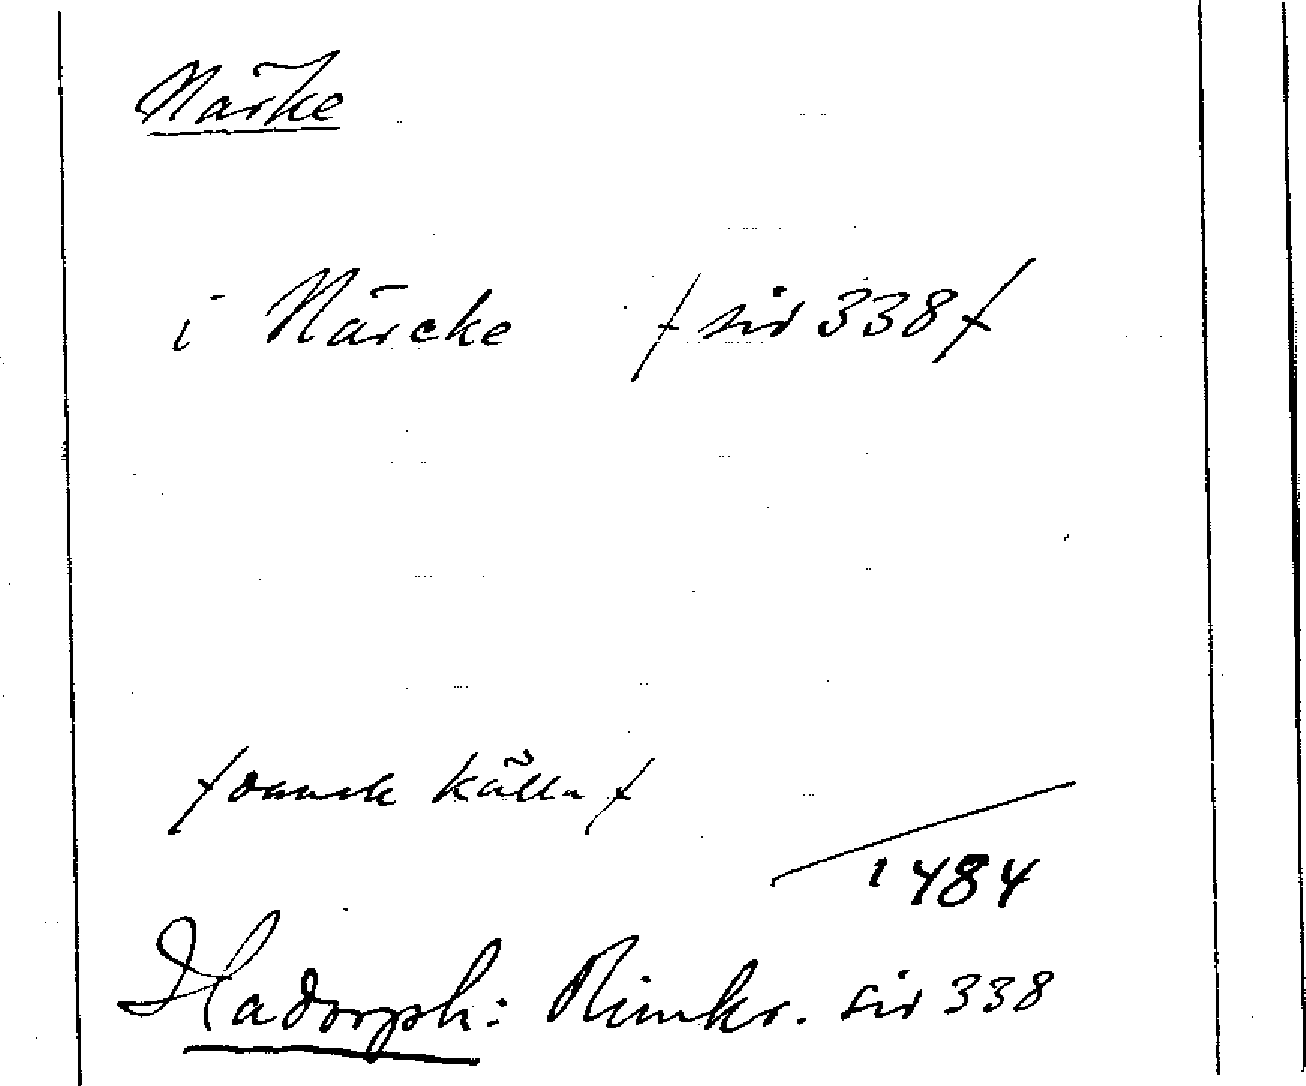 Närke
i Närcke / sid 338 /
/ dansk källa /
1484
Hadorph: Rimkr. sid 338